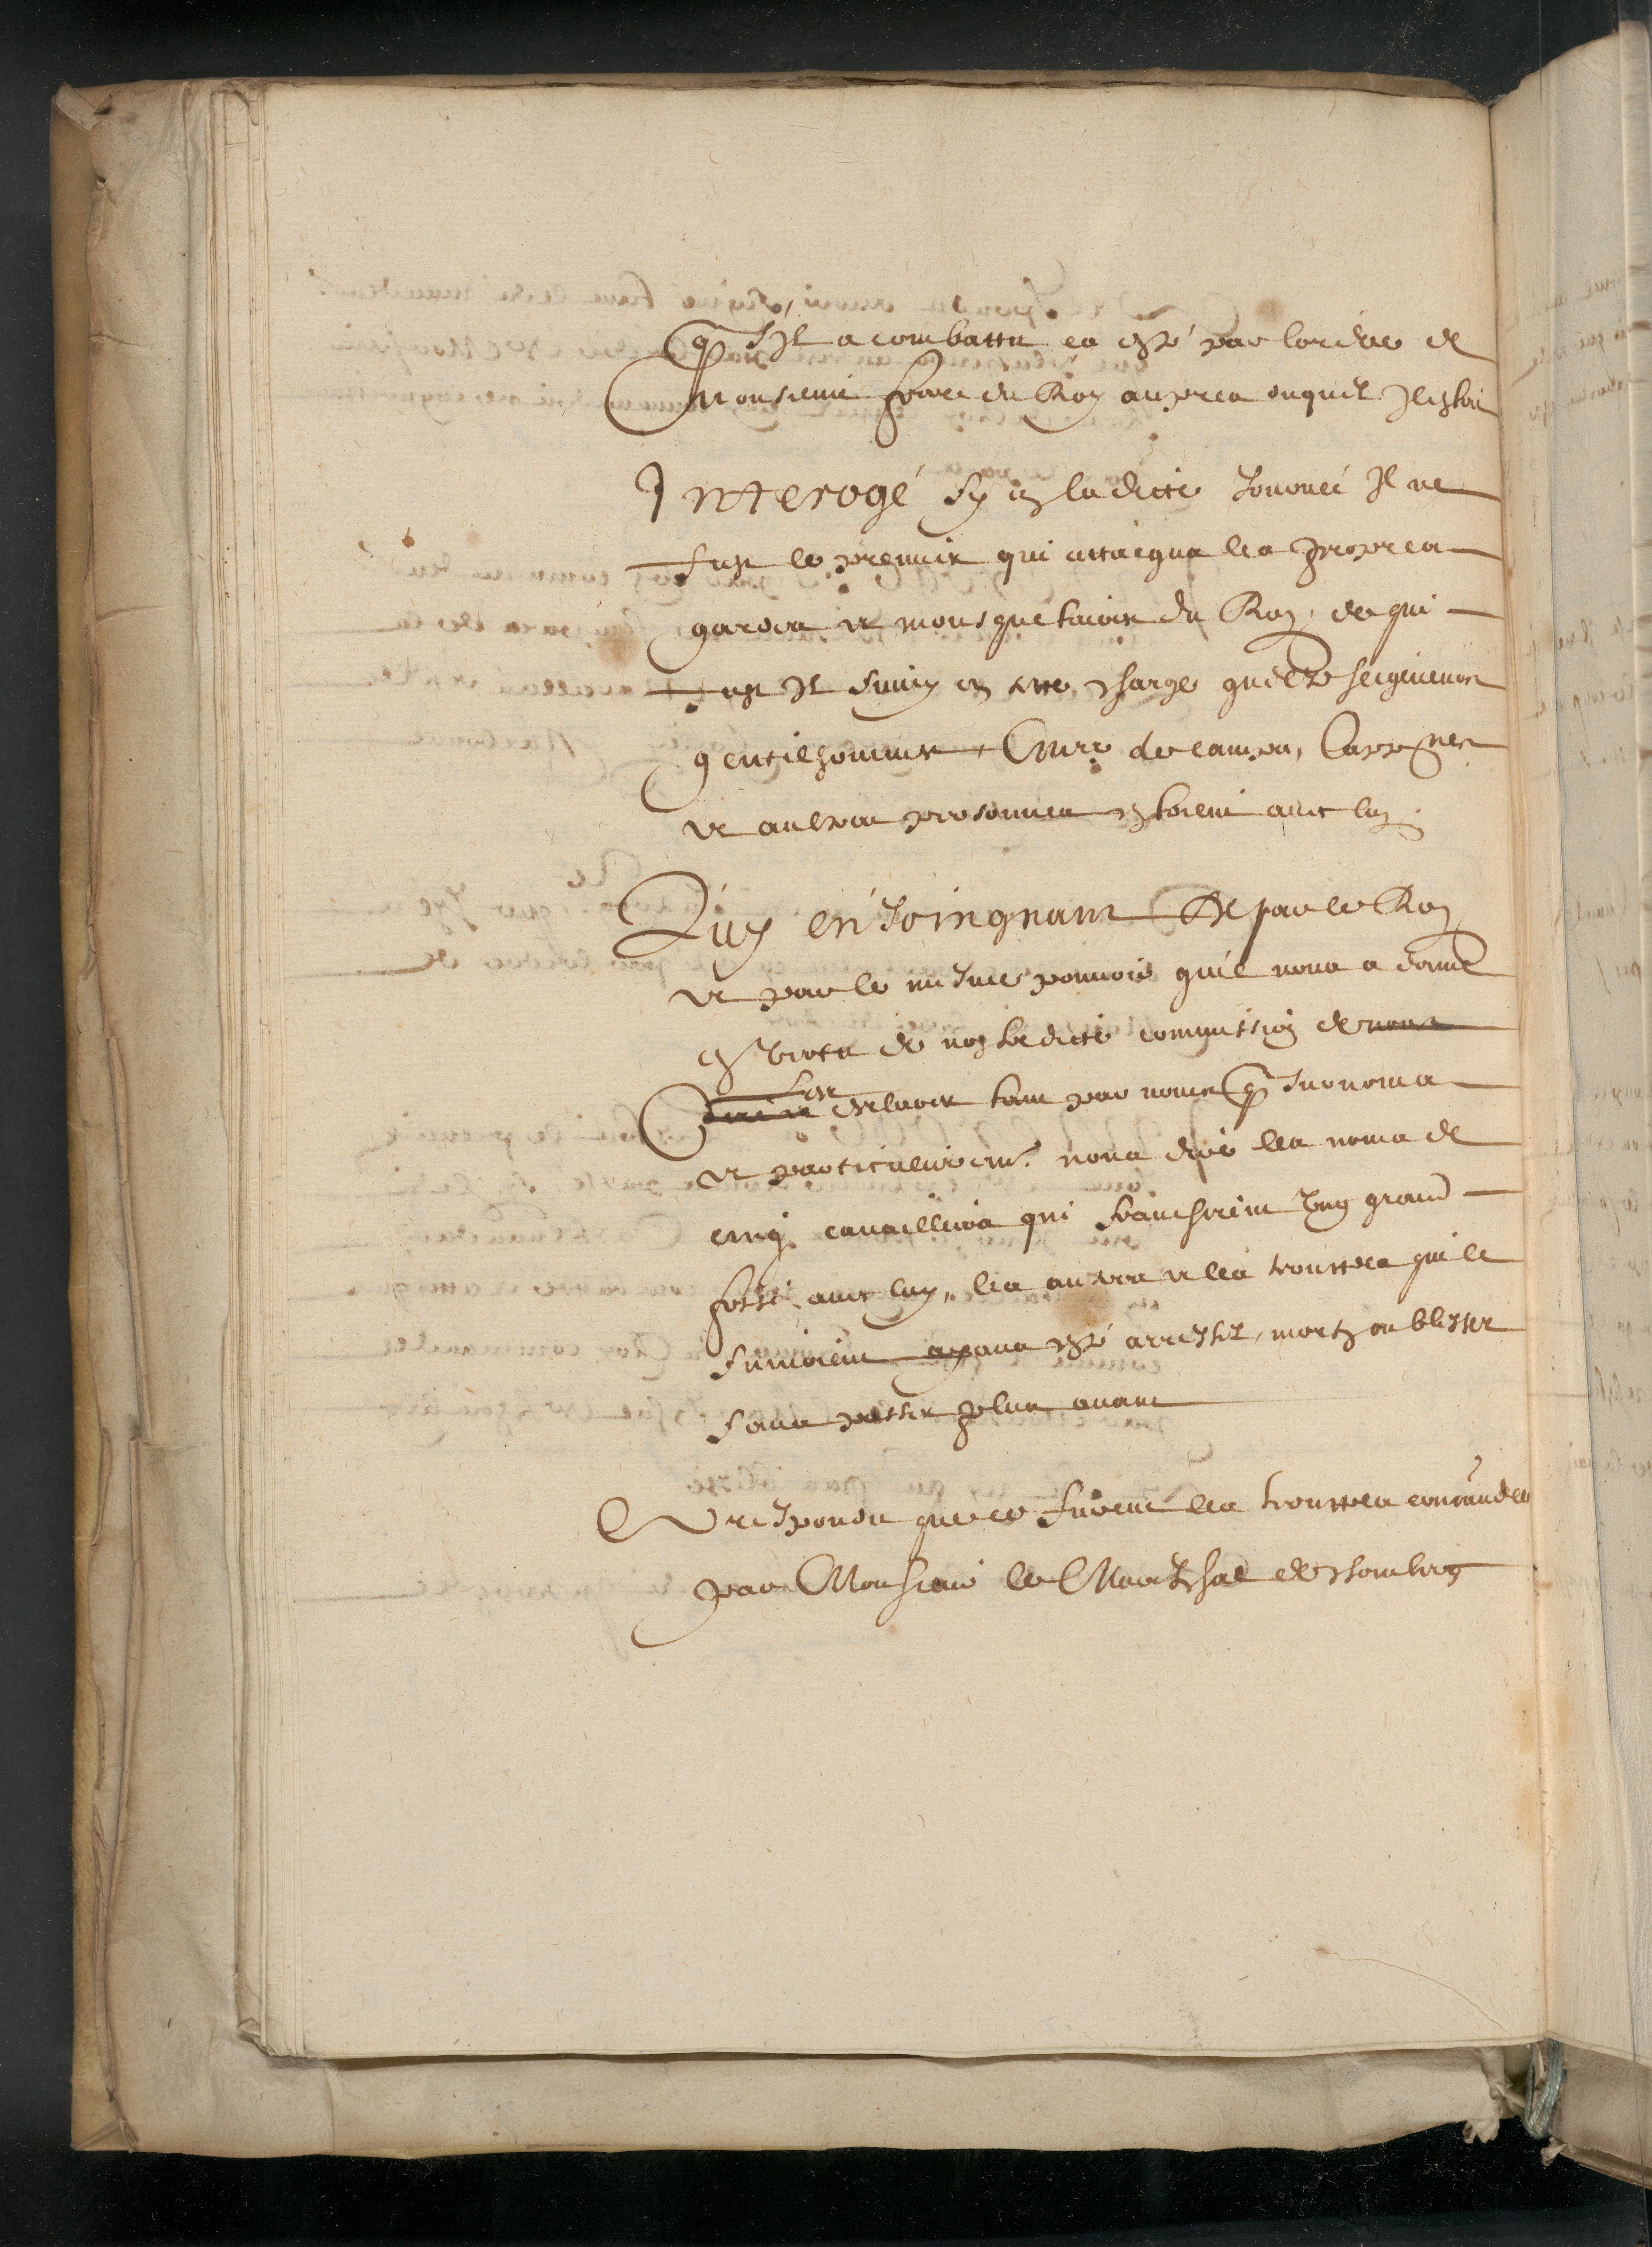 q̃ s'Il a combattu ça esté par lordre de
Monsieur frere du Roy aupres duquel Il estoit
Interogé sy en ladicte Journeé Il ne
fust le premier qui attaigna les propres
gardes et mousquetaires du Roy, de qui
fust Il suivy en cette charge quelz seigneurs
gentilhommes, Mre de camps, Cappnes
et aultres personnes estoient avec luy.
Luy enJoingnant De par le Roy
et par le mesme pouvoir quil nous a donné
en vertu de nostredicte commission de nous
les
declarer tant par noms q̃ surnoms
et particulierem.t nous dire les noms de
cinq cavailliers qui franchirent Ung grand
fossé avec luy, les autres et les trouppes qui le
suivoient ayans esté arrestez, mortz ou blessez
sans passer plus avant
A respondu que ce furent les trouppes commandées
par Monsieur le Mareschal de Chomberg